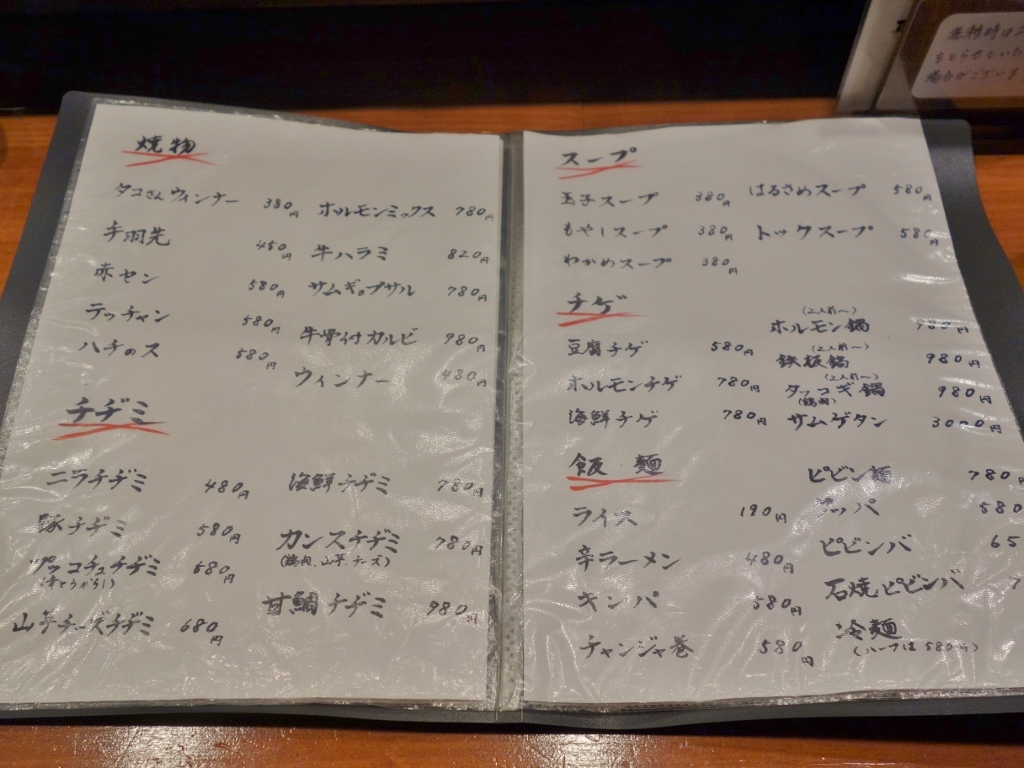 焼物
タコさんウィンナー 380円
手羽先 450円
赤セン 580円
テッチャン 580円
ハチのス 580円
ホルモンミックス 780円
牛ハラミ 820円
サムギョプサル 780円
牛骨付カルビ 980円
ウィンナー 480円
チヂミ
ニラチヂミ 480円
豚チヂミ 580円
プッコチュチヂミ 680円
(青とうがらし)
山芋チーズチヂミ 680円
海鮮チヂミ 780円
カンスチヂミ 780円
(鶏肉、山芋、チーズ)
甘鯛チヂミ 980円
スープ
玉子スープ 380円
もやしスープ 380円
わかめスープ 380円
はるさめスープ 580円
トックスープ 580円
チゲ
豆腐チゲ 580円
ホルモンチゲ 780円
海鮮チゲ 780円
(2人前〜)
ホルモン鍋 980円
(2人前〜)
鉄板鍋 980円
(2人前〜)
タッコギ鍋 980円
(鶏肉)
サムゲタン 3000円
飯 麺
ライス 190円
辛ラーメン 480円
キンパ 580円
チャンジャ巻 580円
ピビン麺 780円
クッパ 580
ピビンバ 65
石焼ピビンバ 7
冷麺
(ハーフは580円)
混雑時は
をとらせていた
場合がございま